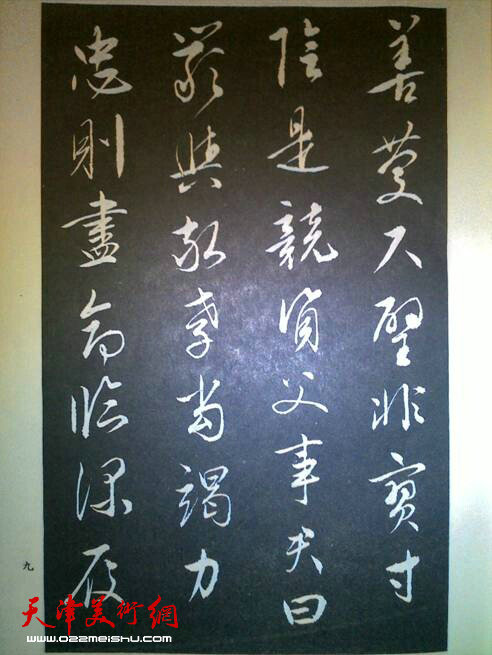 善慶尺璧非寶寸
陰是競資父事君曰
嚴與敬孝當竭力
忠則盡命臨深履
九
天津美術網
www.022meishu.com